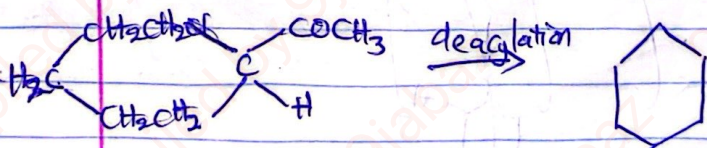 CH2CH2 COCH3 deacylation
H2C C
CH2CH2 H